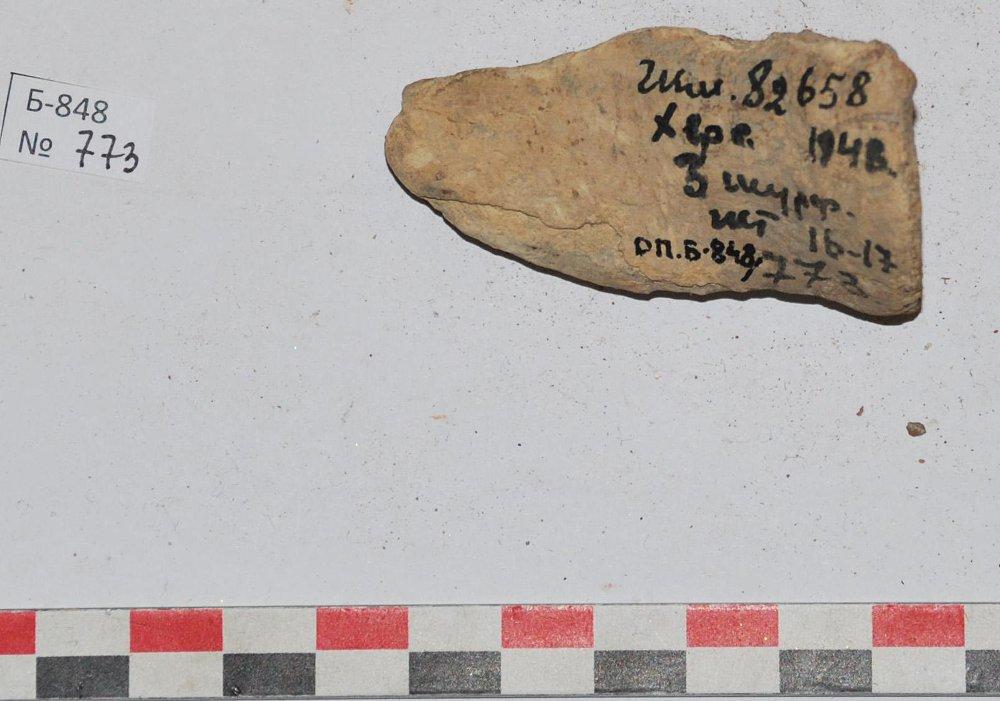 Б-848
№ 773
Гим. 82658
Херс. 194в.
3 шурф.
шт 16-17
оп.Б-848/773